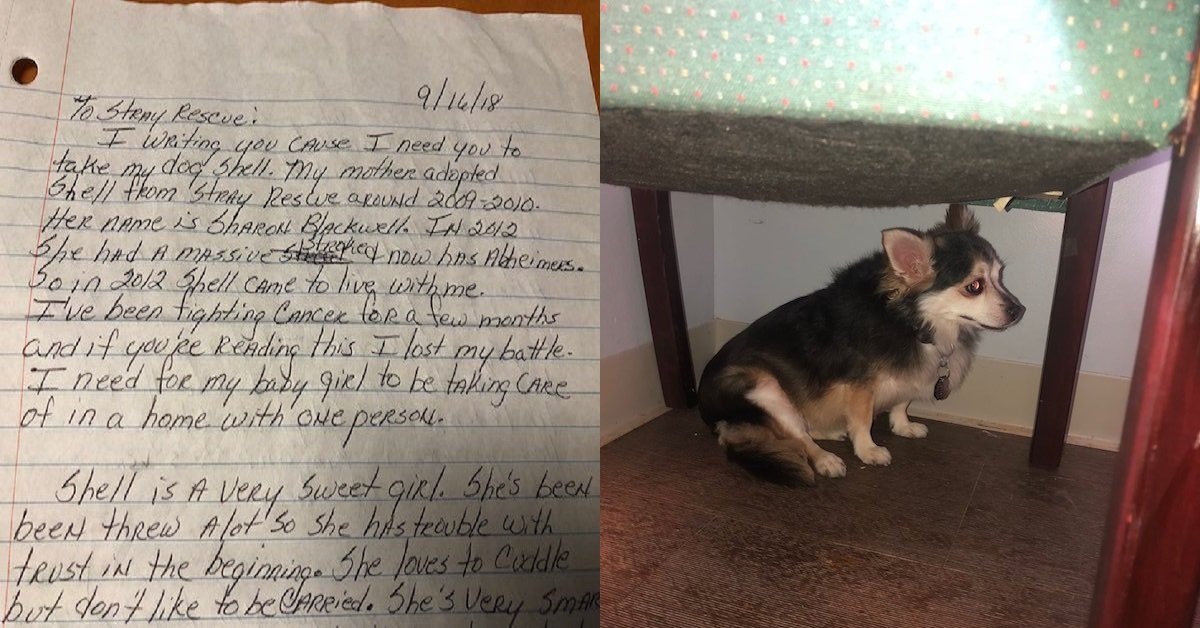 9/16/18
To Stray Rescue:
I writing you cause I need you to
take my dog Shell. My mother adopted
Shell from Stray Rescue around 2009-2010.
Her name is Sharon Blackwell. In 2012
She had a massive Stroke & now has Alheimers.
So in 2012 Shell came to live with me.
I've been fighting Cancer for a few months
and if you're reading this I lost my battle.
I need for my baby girl to be taking care
of in a home with one person.
Shell is a very sweet girl. She's been
been threw alot so she has trouble with
trust in the beginning. She loves to Cuddle
but don't like to be carried. She's very smar